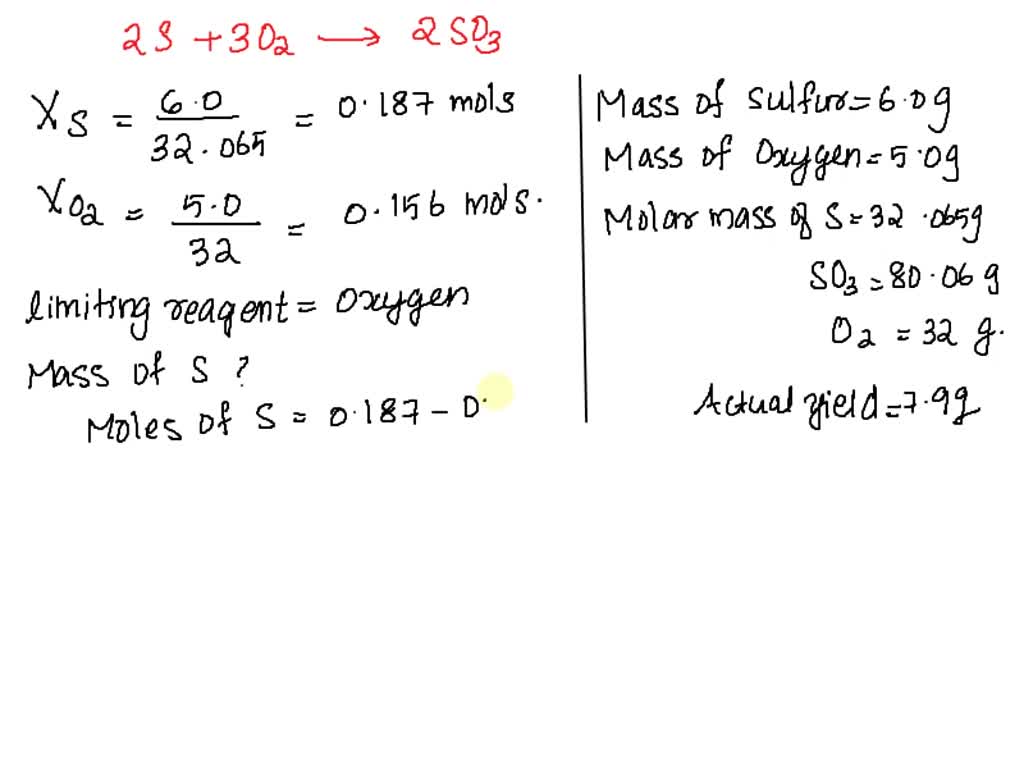 2S + 3O2 → 2SO3
XS = 6.0 / 32.065 = 0.187 mols
XO2 = 5.0 / 32 = 0.156 mols.
limiting reagent = Oxygen
Mass of S ?
Moles of S = 0.187 - 0.
Mass of Sulfur = 6.0g
Mass of Oxygen = 5.0g
Molar mass of S = 32.065g
SO3 = 80.06 g
O2 = 32 g.
Actual yield = 7.9g